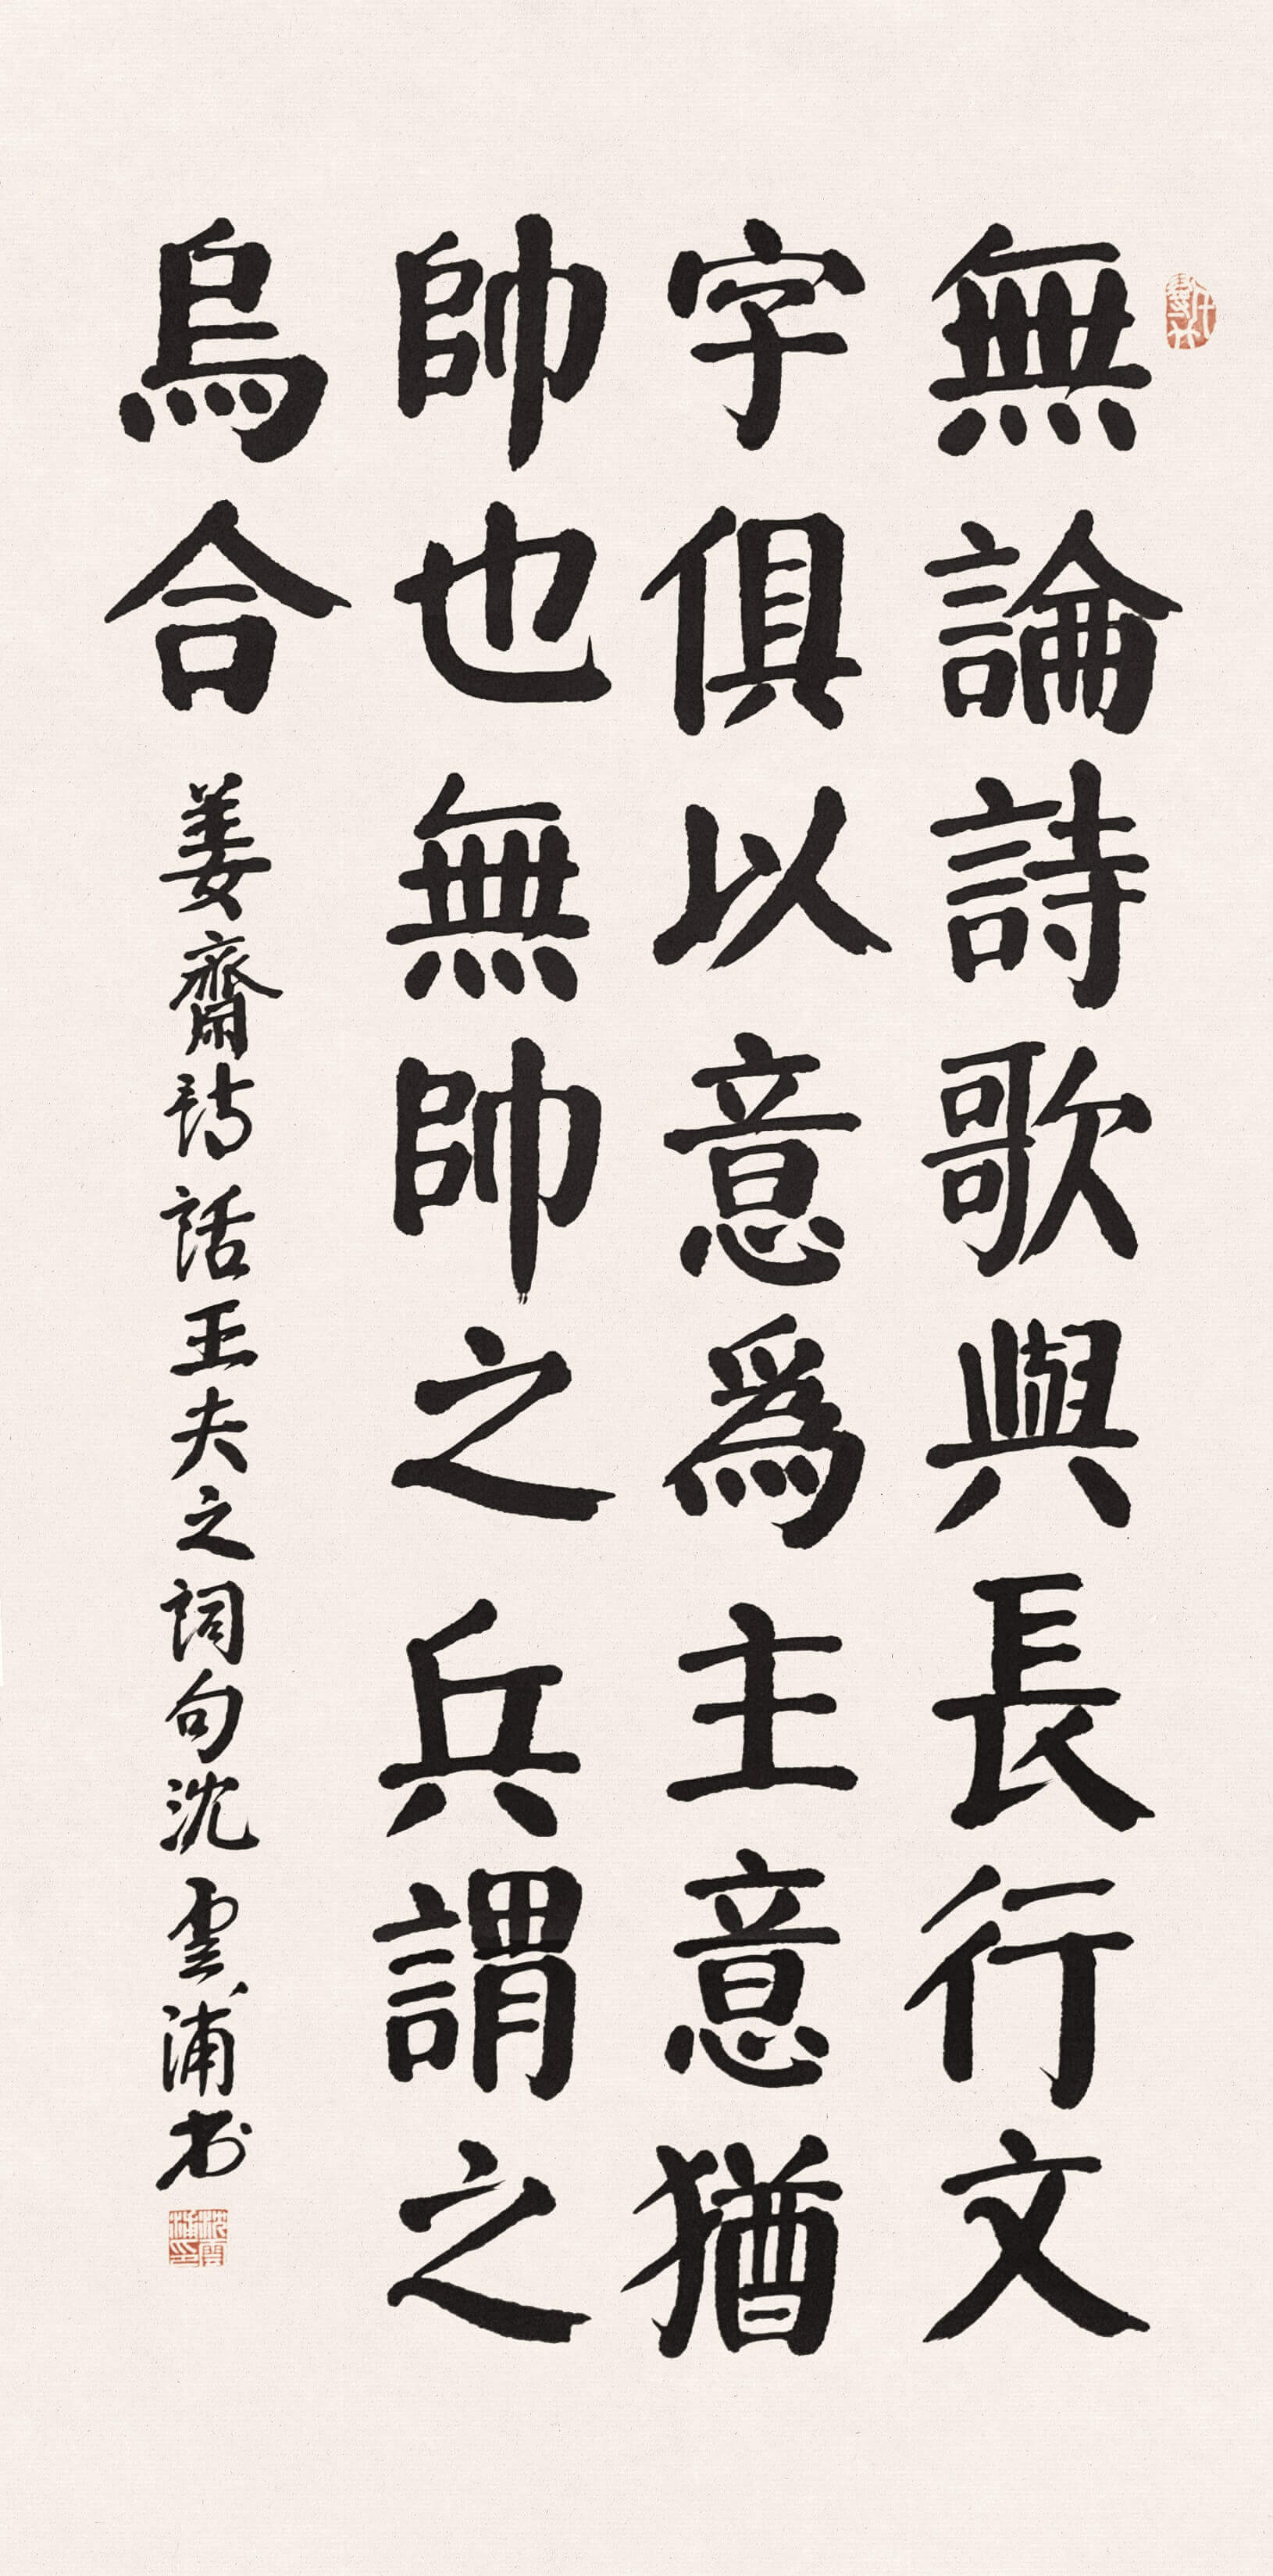 無論詩歌與長行文
字俱以意爲主意猶
帥也無帥之兵謂之
烏合
姜齋詩話王夫之詞句沈雲浦書
沈雲浦印